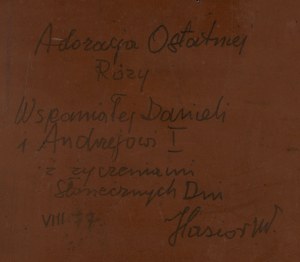 Adoracja Ostatniej
Róży
Wspaniałej Danieli
i Andrzejowi I
z życzeniami
Słonecznych Dni
VIII 77 Hasior W.